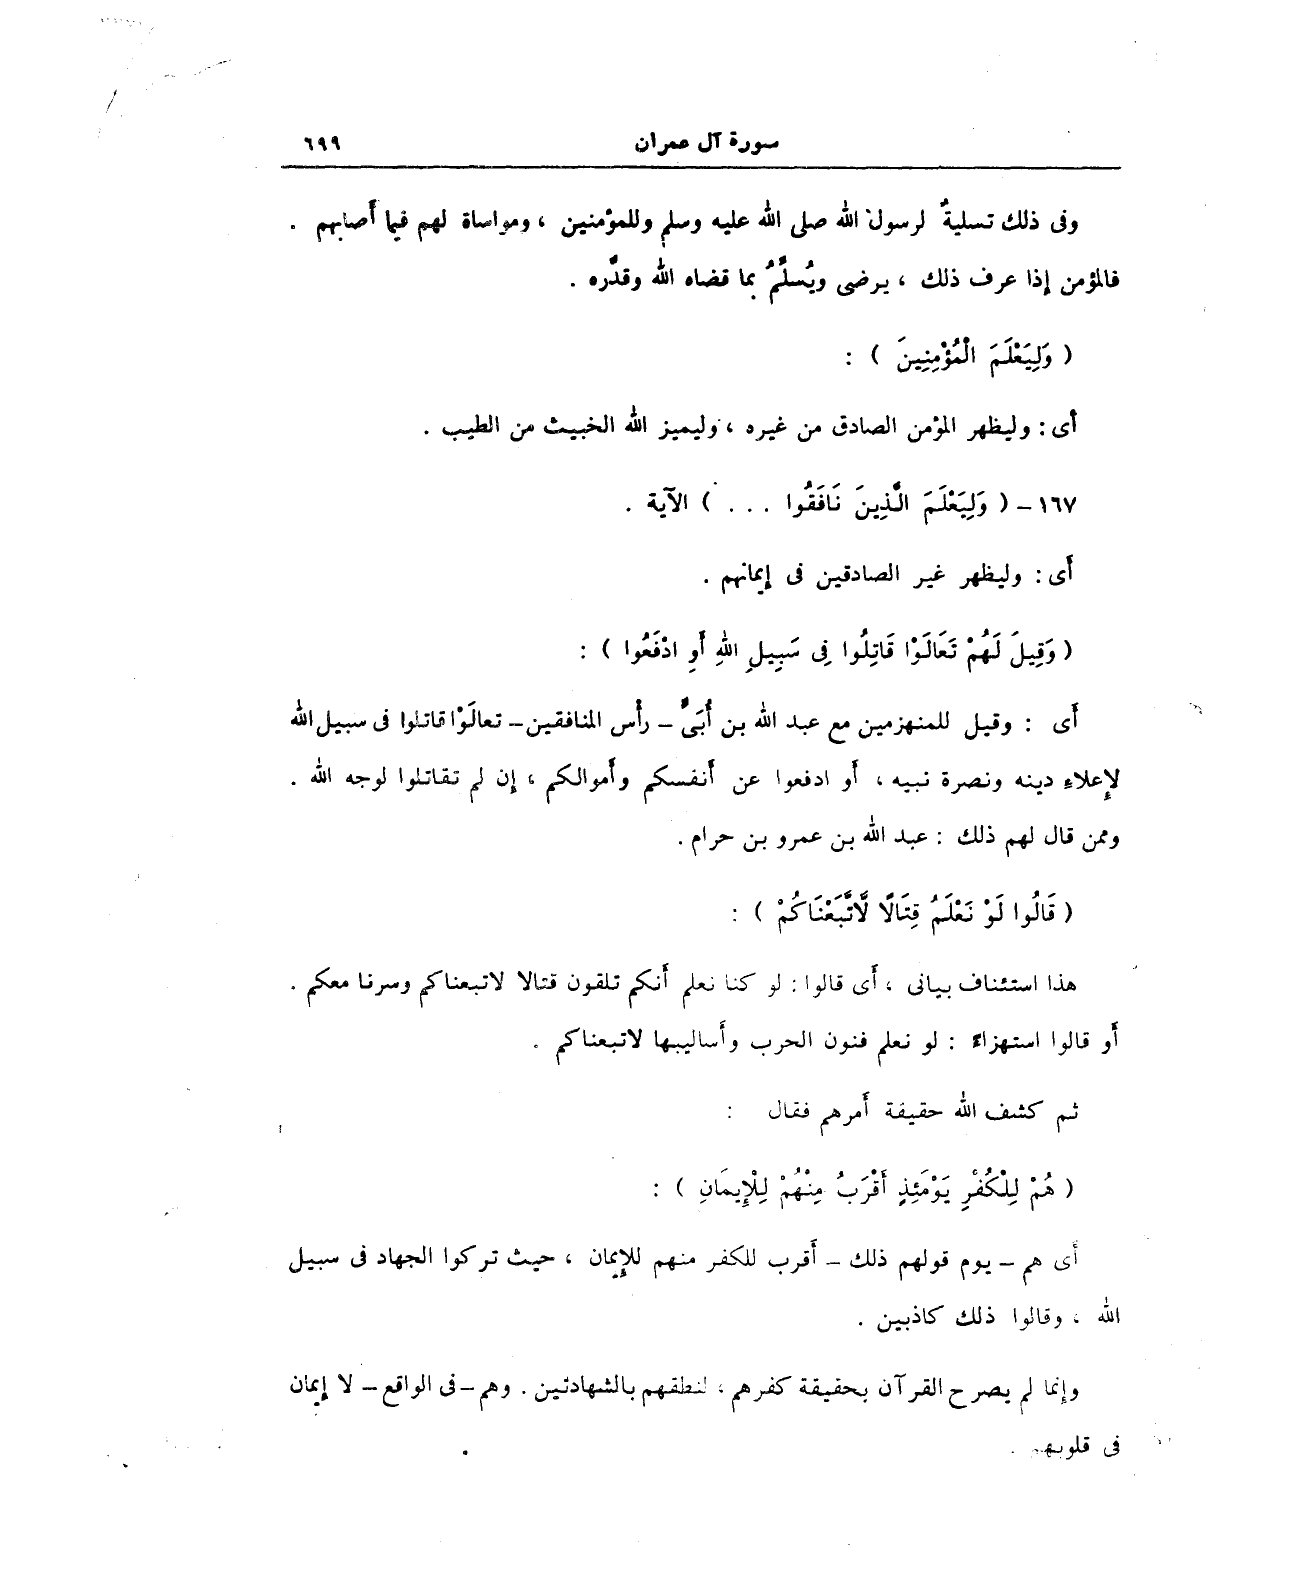 سورة آل عمران ٦٩٩
وفى ذلك تسليةٌ لرسول الله صلى الله عليه وسلم وللمؤمنين ، ومواساة لهم فيما أصابهم .
فالمؤمن إذا عرف ذلك ، يرضى ويُسلِّمُ بما قضاه الله وقدَّره .
( وَلِيَعْلَمَ الْمُؤْمِنِينَ ) :
أى : وليظهر المؤمن الصادق من غيره ، وليميز الله الخبيث من الطيب .
١٦٧ – ( وَلِيَعْلَمَ الَّذِينَ نَافَقُوا . . . ) الآية .
أى : وليظهر غير الصادقين فى إيمانهم .
( وَقِيلَ لَهُمْ تَعَالَوْا قَاتِلُوا فِى سَبِيلِ اللهِ أَوِ ادْفَعُوا ) :
أى : وقيل للمنهزمين مع عبد الله بن أُبَىٍّ – رأس المنافقين – تعالَوْا قاتلوا فى سبيل الله
لإعلاء دينه ونصرة نبيه ، أو ادفعوا عن أنفسكم وأموالكم ، إن لم تقاتلوا لوجه الله .
وممن قال لهم ذلك : عبد الله بن عمرو بن حرام .
( قَالُوا لَوْ نَعْلَمُ قِتَالًا لَّاتَّبَعْنَاكُمْ ) :
هذا استئناف بيانى ، أى قالوا : لو كنا نعلم أنكم تلقون قتالا لاتبعناكم وسرنا معكم .
أو قالوا استهزاء : لو نعلم فنون الحرب وأساليبها لاتبعناكم .
ثم كشف الله حقيقة أمرهم فقال :
( هُمْ لِلْكُفْرِ يَوْمَئِذٍ أَقْرَبُ مِنْهُمْ لِلْإِيمَانِ ) :
أى هم – يوم قولهم ذلك – أقرب للكفر منهم للإيمان ، حيث تركوا الجهاد فى سبيل
الله ، وقالوا ذلك كاذبين .
وإنما لم يصرح القرآن بحقيقة كفرهم ، لنطقهم بالشهادتين . وهم – فى الواقع – لا إيمان
فى قلوبهم .